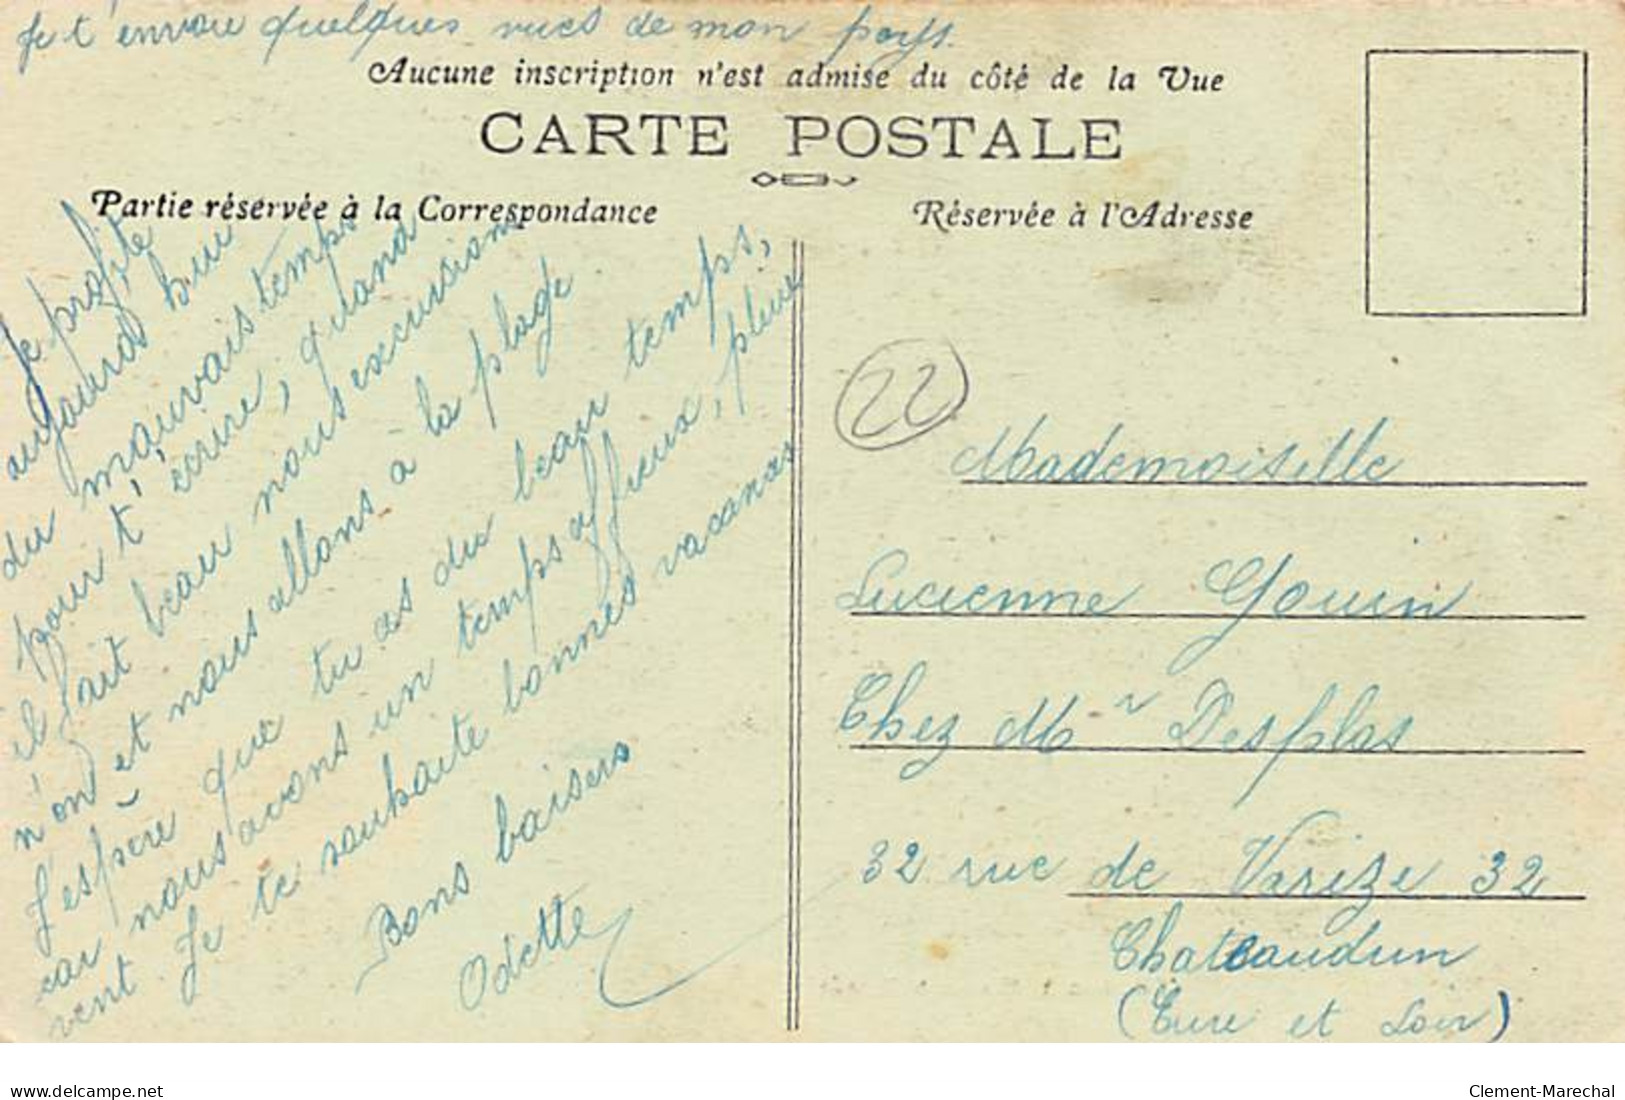 Je t'envoie quelques vues de mon pays.
Aucune inscription n'est admise du côté de la Vue
CARTE POSTALE
Partie réservée à la Correspondance
Réservée à l'Adresse
Je profite
aujourd hui
du mauvais temps
pour t'écrire, quand
il fait beau nous excursionn
n'on et nous allons à la plage
J'espère que tu as du beau temps,
car nous avons un temps affreux, pluie
vent. Je te souhaite bonnes vacances
Bons baisers
Odette
22
Mademoiselle
Lucienne Gouin
Chez Mr Desplas
32 rue de Varize 32
Chateaudun
(Eure et Loir)
delcampe.net
Clement-Marechal